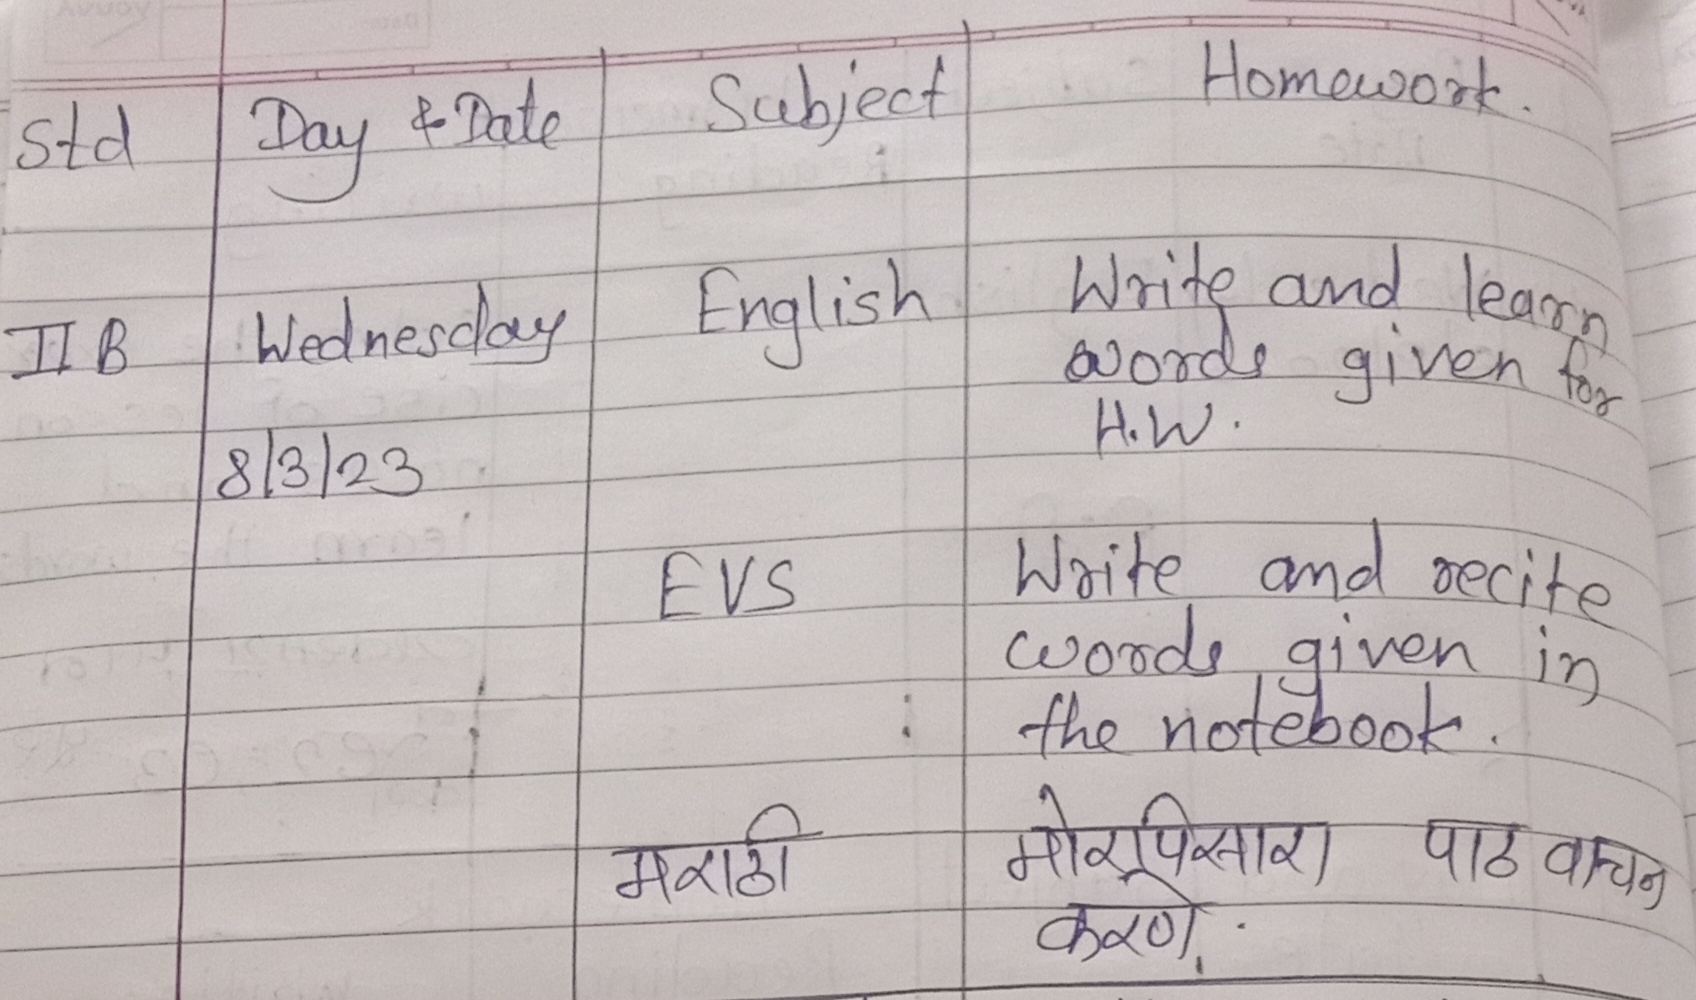 Std Day & Date Subject Homework.
II B Wednesday English Write and learn
words given for
H.W.
8/3/23
EVS Write and recite
words given in
the notebook.
मराठी मोरपिसारा पाठ वाचन
करणे.